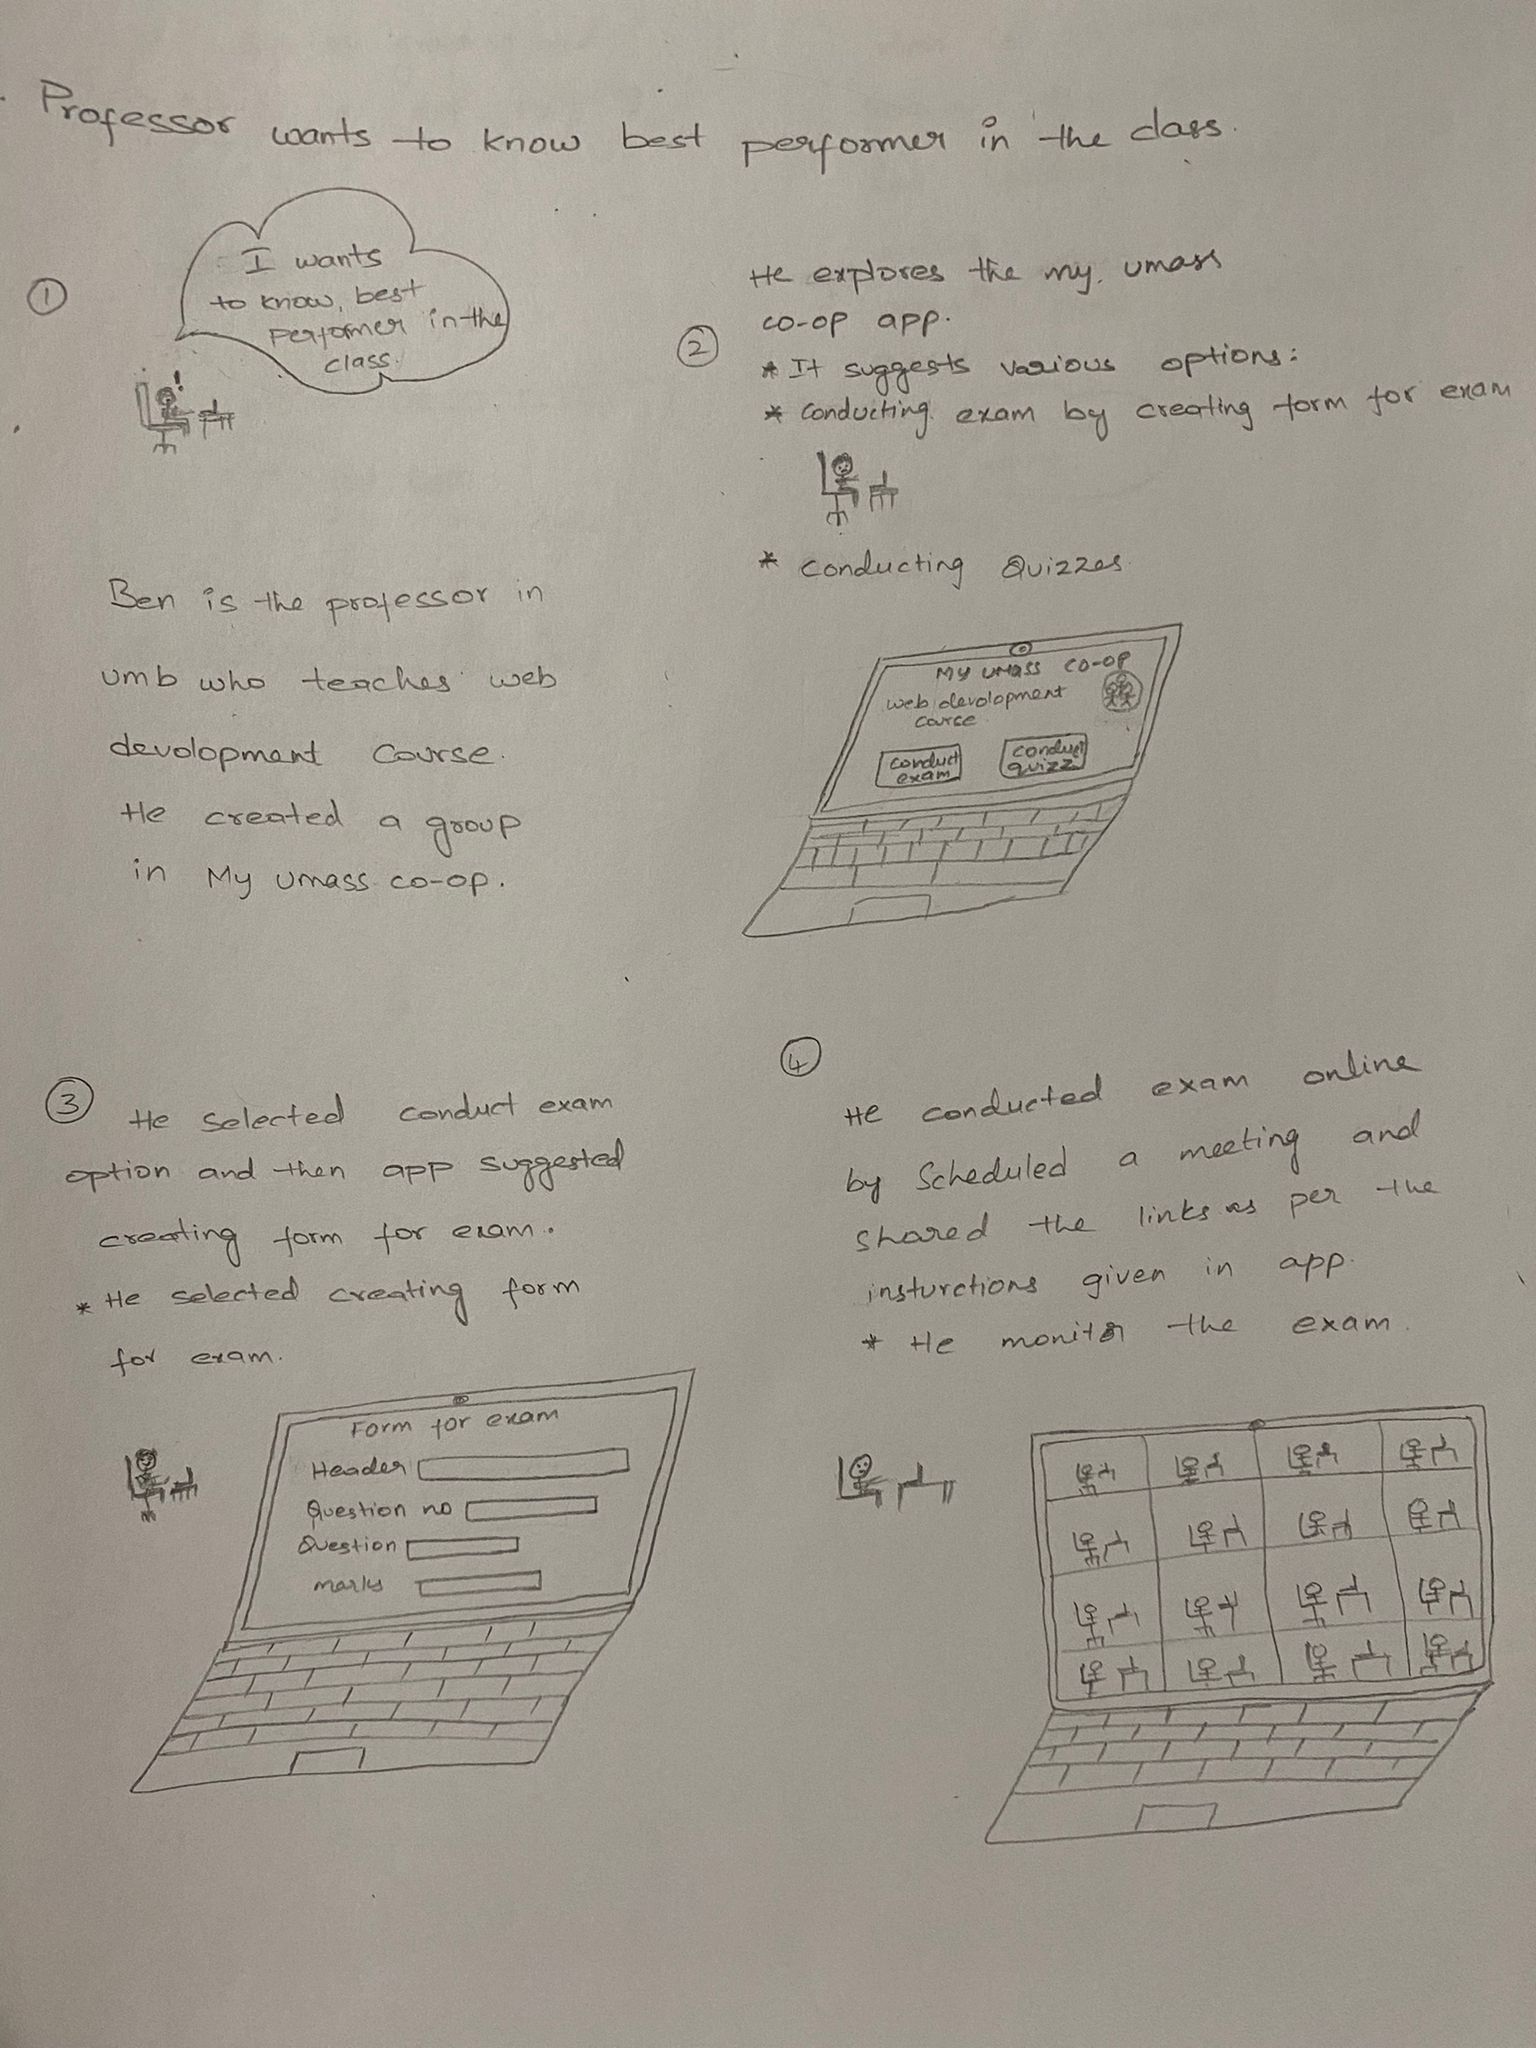 Professor wants to know best performer in the class.
1
I wants
to know, best
performer in the
class.
!
Ben is the professor in
umb who teaches web
devolopment course.
He created a group
in My umass co-op.
2
He explores the my umass
co-op app.
* It suggests various options:
* conducting exam by creating form for exam
* conducting Quizzes
My UMASS co-op
web devolopment
course
conduct
exam
conduct
quizz
3
He selected conduct exam
option and then app suggested
creating form for exam.
* He selected creating form
for exam.
Form for exam
Header
Question no
Question
marks
4
He conducted exam online
by Scheduled a meeting and
shared the links as per the
insturctions given in app.
* He monitor the exam.